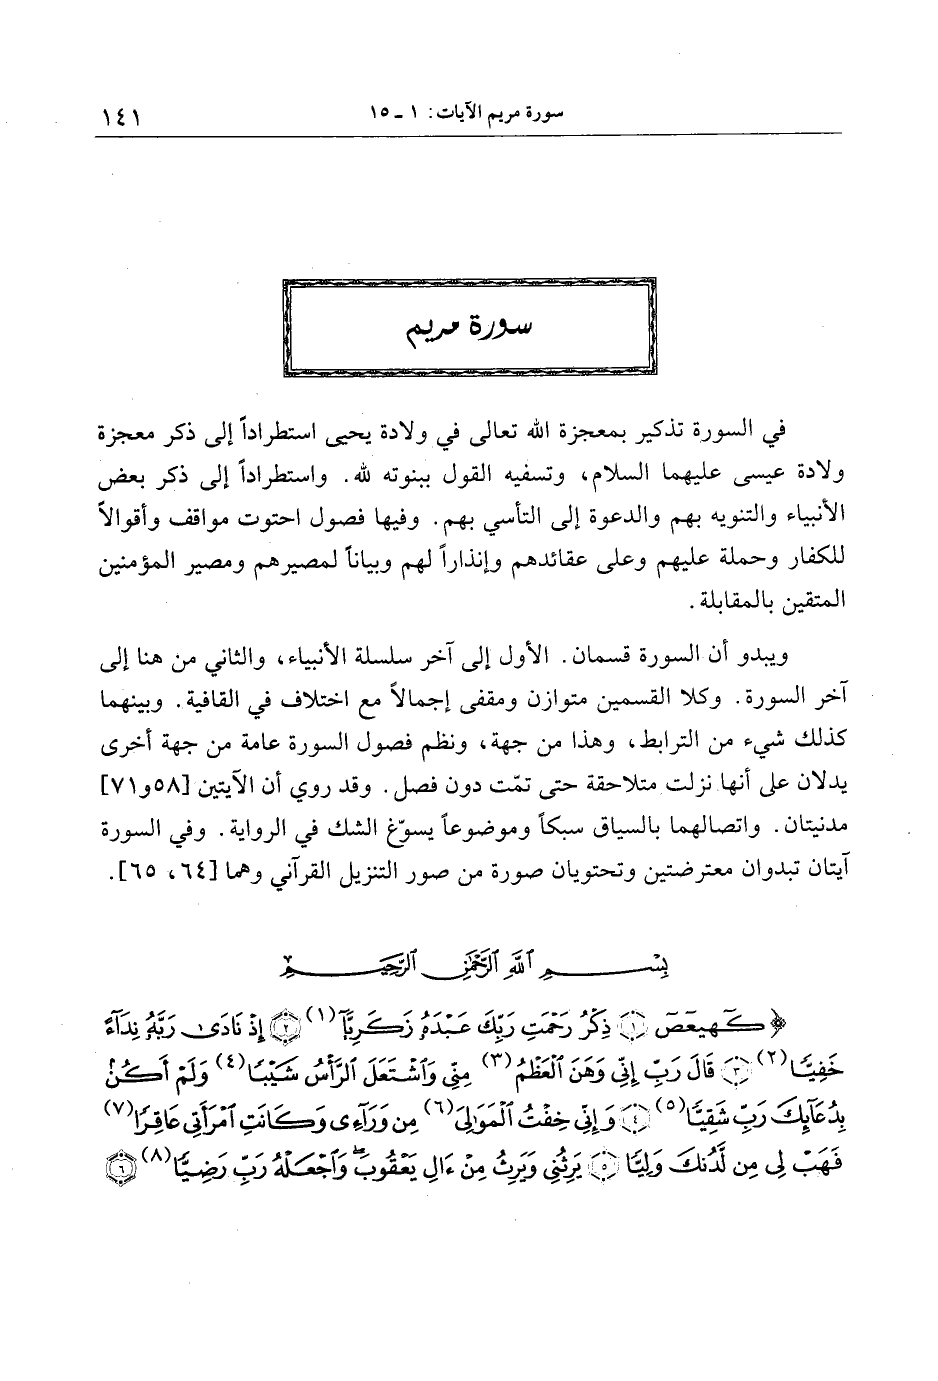 سورة مريم الآيات: ١ ـ ١٥ ١٤١
سورة مريم
في السورة تذكير بمعجزة الله تعالى في ولادة يحيى استطراداً إلى ذكر معجزة
ولادة عيسى عليهما السلام، وتسفيه القول ببنوته لله. واستطراداً إلى ذكر بعض
الأنبياء والتنويه بهم والدعوة إلى التأسي بهم. وفيها فصول احتوت مواقف وأقوالاً
للكفار وحملة عليهم وعلى عقائدهم وإنذاراً لهم وبياناً لمصيرهم ومصير المؤمنين
المتقين بالمقابلة.
ويبدو أن السورة قسمان. الأول إلى آخر سلسلة الأنبياء، والثاني من هنا إلى
آخر السورة. وكلا القسمين متوازن ومقفى إجمالاً مع اختلاف في القافية. وبينهما
كذلك شيء من الترابط، وهذا من جهة، ونظم فصول السورة عامة من جهة أخرى
يدلان على أنها نزلت متلاحقة حتى تمّت دون فصل. وقد روي أن الآيتين [٥٨ و٧١]
مدنيتان. واتصالهما بالسياق سبكاً وموضوعاً يسوّغ الشك في الرواية. وفي السورة
آيتان تبدوان معترضتين وتحتويان صورة من صور التنزيل القرآني وهما [٦٤، ٦٥].
بِسْمِ ٱللَّهِ ٱلرَّحْمَٰنِ ٱلرَّحِيمِ
﴿كٓهيعٓصٓ ۝١ ذِكْرُ رَحْمَتِ رَبِّكَ عَبْدَهُۥ زَكَرِيَّآ(١) ۝٢ إِذْ نَادَىٰ رَبَّهُۥ نِدَآءً
خَفِيًّا(٢) ۝٣ قَالَ رَبِّ إِنِّي وَهَنَ ٱلْعَظْمُ(٣) مِنِّي وَٱشْتَعَلَ ٱلرَّأْسُ شَيْبًا(٤) وَلَمْ أَكُنۢ
بِدُعَآئِكَ رَبِّ شَقِيًّا(٥) ۝٤ وَإِنِّي خِفْتُ ٱلْمَوَٰلِيَ(٦) مِن وَرَآءِي وَكَانَتِ ٱمْرَأَتِي عَاقِرًا(٧)
فَهَبْ لِي مِن لَّدُنكَ وَلِيًّا ۝٥ يَرِثُنِي وَيَرِثُ مِنْ ءَالِ يَعْقُوبَۖ وَٱجْعَلْهُ رَبِّ رَضِيًّا(٨) ۝٦